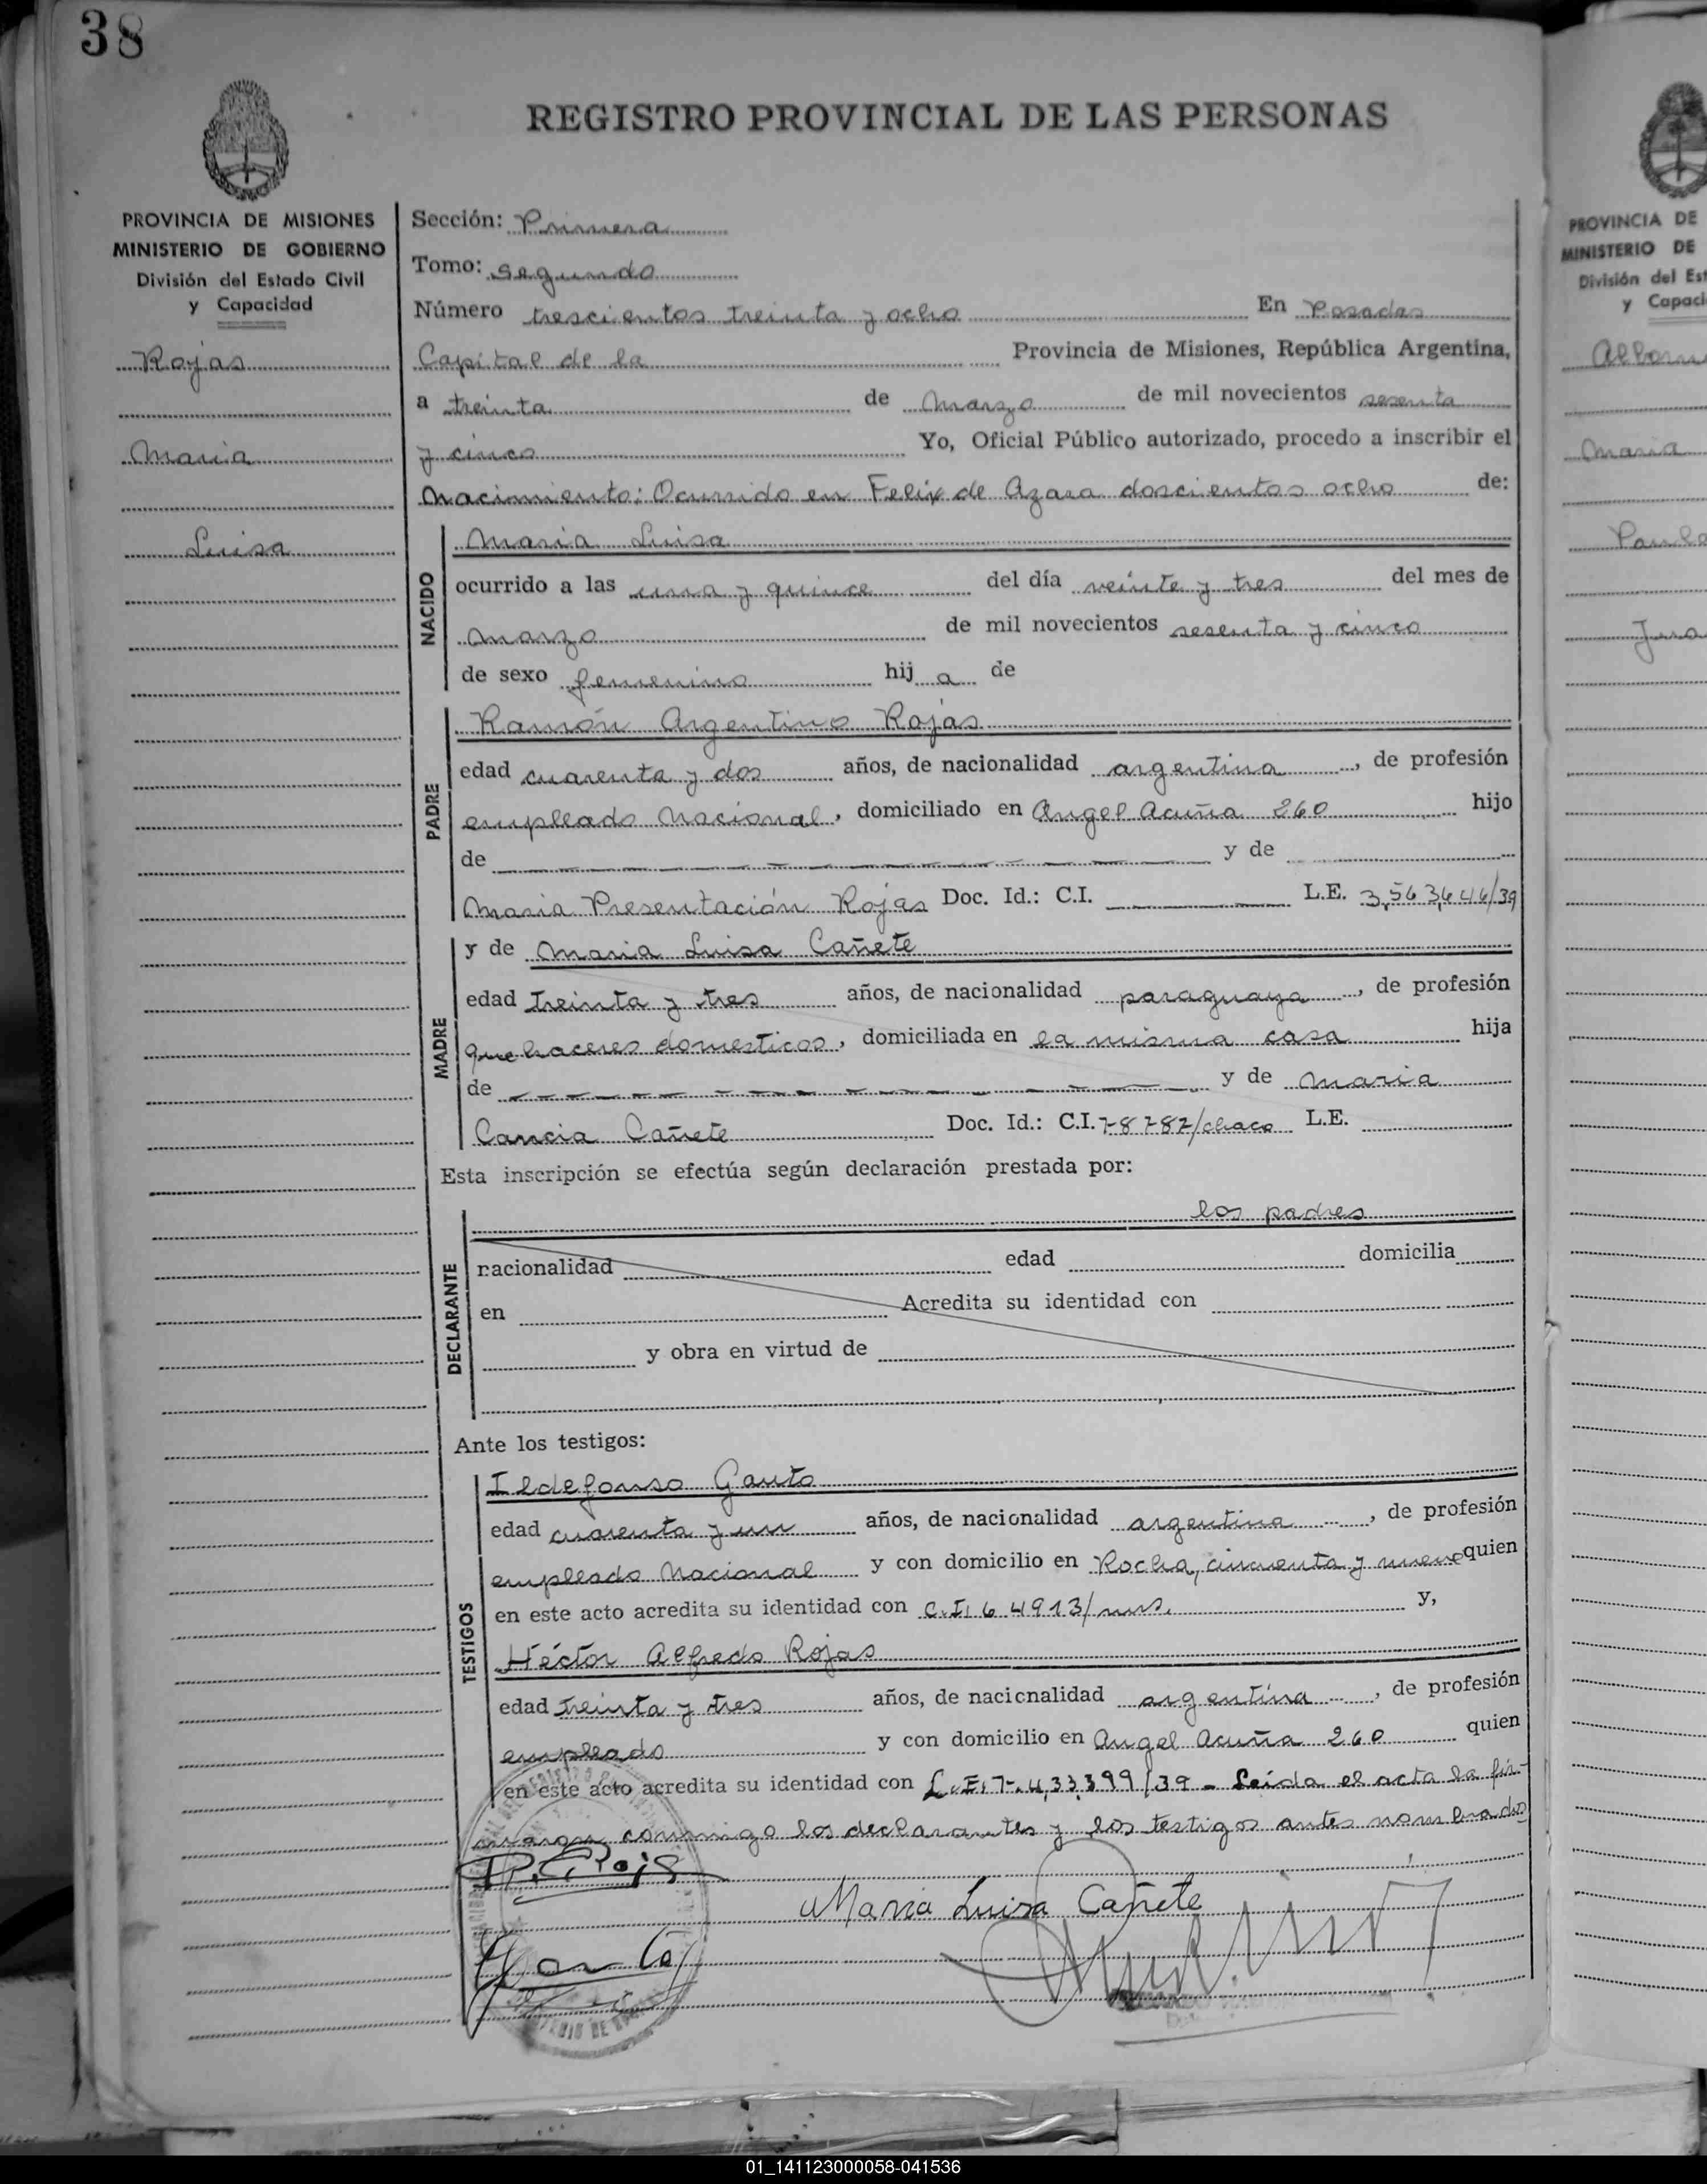 38
REGISTRO PROVINCIAL DE LAS PERSONAS
PROVINCIA DE MISIONES
MINISTERIO DE GOBIERNO
División del Estado Civil
y Capacidad
Rojas
Maria
Luisa
Sección: Primera
Tomo: segundo
Número trescientos treinta y ocho En Posadas
Capital de la Provincia de Misiones, República Argentina,
a treinta de Marzo de mil novecientos sesenta
y cinco Yo, Oficial Público autorizado, procedo a inscribir el
Nacimiento: Ocurrido en Felix de Azara doscientos ocho de:
NACIDO
Maria Luisa
ocurrido a las una y quince del día veinte y tres del mes de
Marzo de mil novecientos sesenta y cinco
de sexo femenino hij a de
PADRE
Ramón Argentino Rojas
edad cuarenta y dos años, de nacionalidad argentina, de profesión
empleado Nacional, domiciliado en Angel Acuña 260 hijo
de y de
Maria Presentación Rojas Doc. Id.: C.I. L.E. 3,563,646/39
MADRE
y de Maria Luisa Cañete
edad treinta y tres años, de nacionalidad paraguaya, de profesión
quehaceres domesticos, domiciliada en la misma casa hija
de y de Maria
Cancia Cañete Doc. Id.: C.I. 78787/chaco L.E.
Esta inscripción se efectúa según declaración prestada por:
DECLARANTE
los padres
nacionalidad edad domicilia
en Acredita su identidad con
y obra en virtud de
Ante los testigos:
TESTIGOS
Ildefonso Gauto
edad cuarenta y un años, de nacionalidad argentina, de profesión
empleado Nacional y con domicilio en Rocha, cincuenta y nueve quien
en este acto acredita su identidad con C.I. 64913/mns. y,
Héctor Alfredo Rojas
edad treinta y tres años, de nacionalidad argentina, de profesión
empleado y con domicilio en Angel Acuña 260 quien
en este acto acredita su identidad con L.E. 7.433,399/39 - Leída el acta la fir-
man conmigo los declarantes y los testigos antes nombrados
Maria Luisa Cañete
Gauto
PROVINCIA DE
MINISTERIO DE
División del Est
y Capaci
Maria
01_141123000058-041536